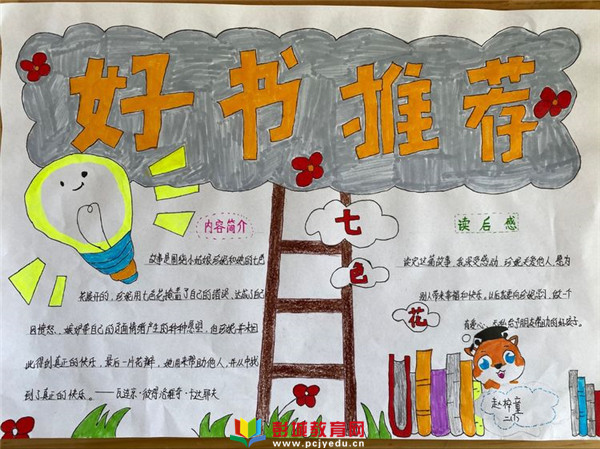 好书推荐
七色花
内容简介
故事是围绕小姑娘珍妮和她的七色
花展开的，珍妮用七色花掩盖了自己的错误，达成了自己
因愤怒、嫉妒等自己的负面情绪产生的种种愿望，但珍妮并未因
此得到真正的快乐，最后一片花瓣，她用来帮助他人，并从中找
到了真正的快乐。——瓦连京·彼得洛维奇·卡达耶夫
读后感
读完这篇故事，我深受感动，珍妮关爱他人，愿为
别人带来幸福和快乐。从后我要向珍妮学习，做一个
有爱心，给朋友帮助的好孩子。
赵梓童
二(1)
彭城教育网
www.pcjyedu.cn